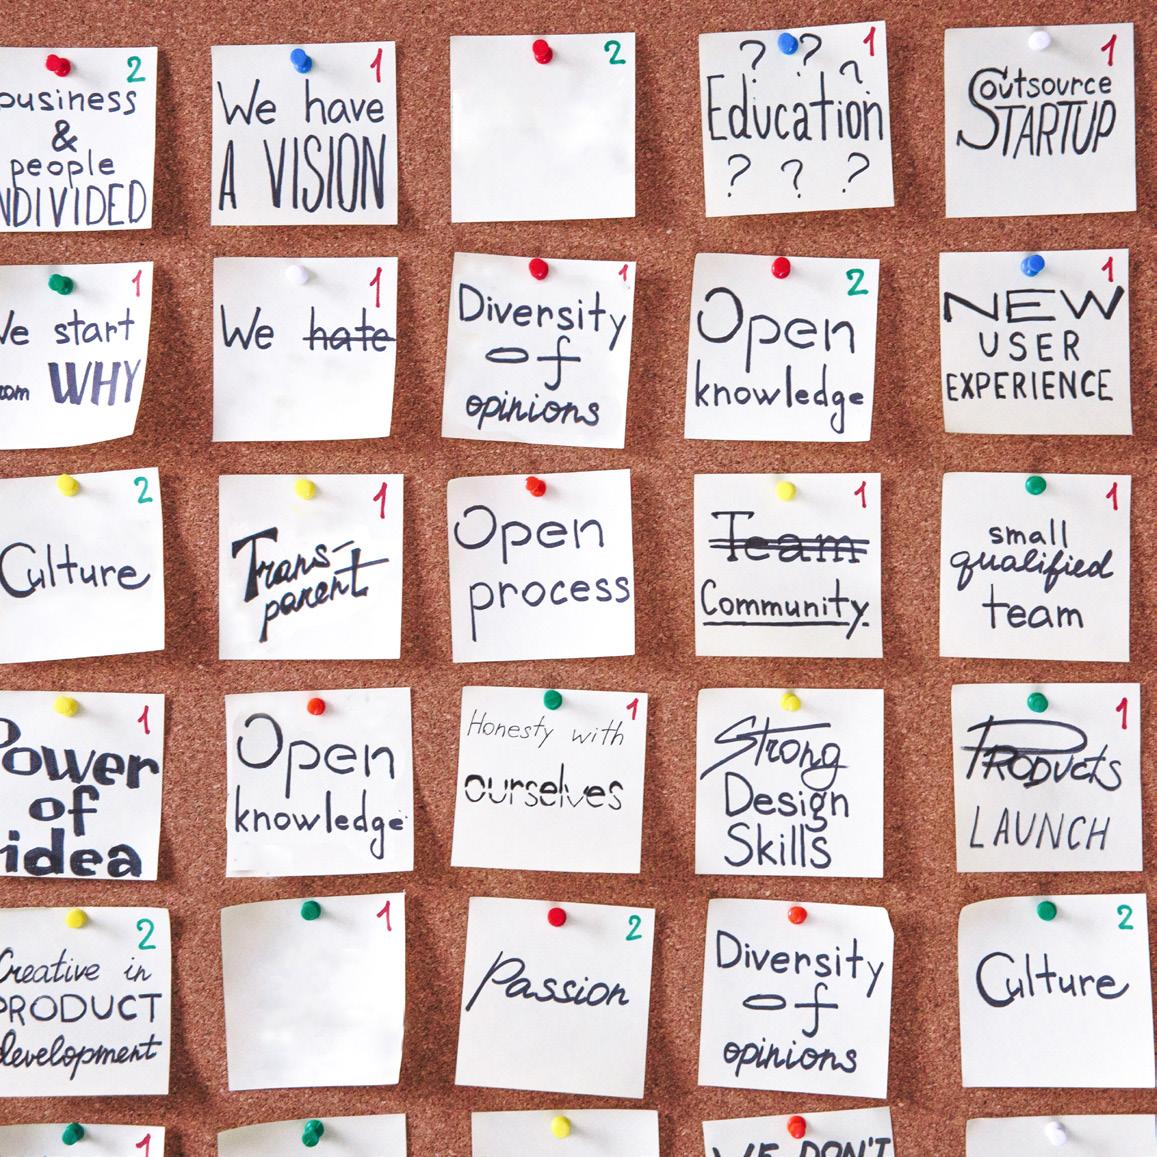 2
business
&
people
UNDIVIDED
1
We have
A VISION
2
1
? ? ?
Education
? ? ?
1
outsource
STARTUP
1
We start
from WHY
1
We hate
1
Diversity
of
opinions
2
Open
knowledge
1
NEW
USER
EXPERIENCE
2
Culture
1
Trans-
parent
Open
process
1
Team
Community.
1
small
qualified
team
1
Power
of
idea
Open
knowledge
1
Honesty with
ourselves
Strong
Design
Skills
1
PRODUCTS
LAUNCH
2
Creative in
PRODUCT
development
1
2
Passion
Diversity
of
opinions
2
Culture
1
WE DON'T